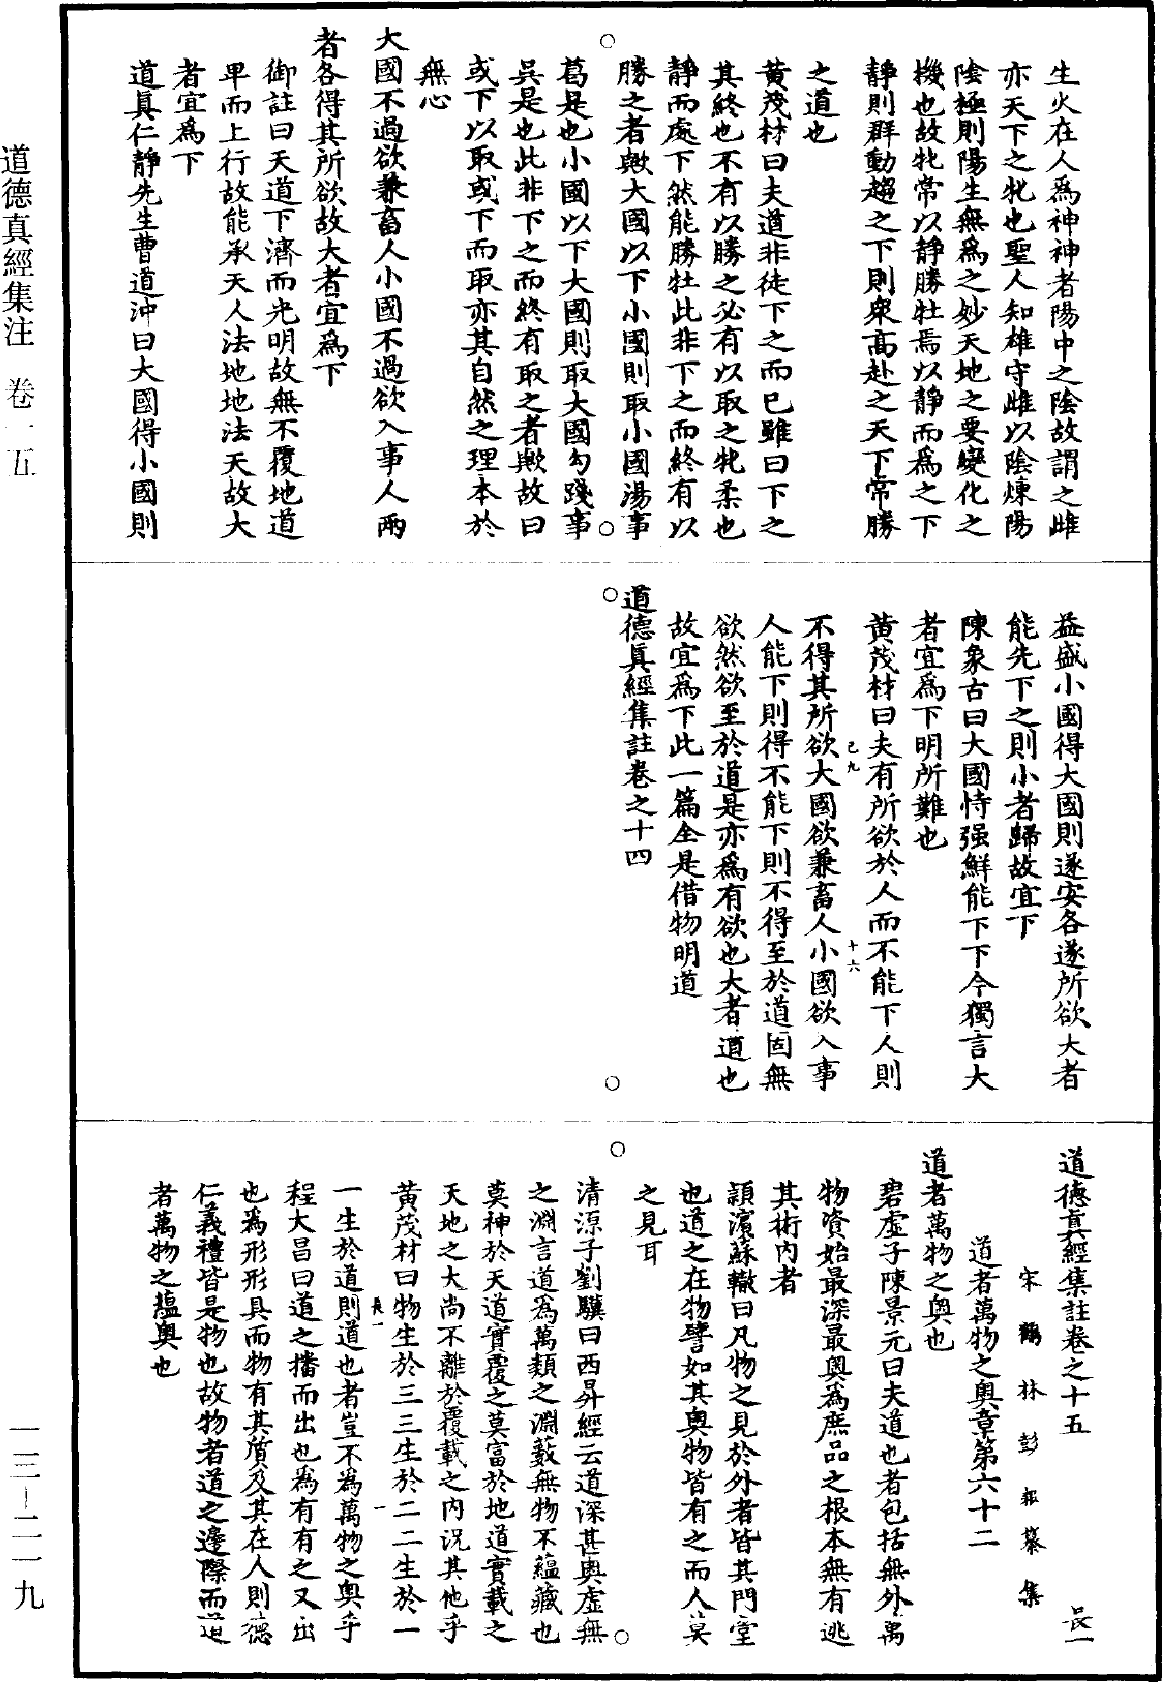 生火在人爲神神者陽中之陰故謂之雌
亦天下之牝也聖人知雄守雌以陰煉陽
陰極則陽生無爲之妙天地之要變化之
機也故牝常以靜勝牡焉以靜而爲之下
靜則群動趨之下則衆高赴之天下常勝
之道也
黃茂材曰夫道非徒下之而已雖曰下之
其終也不有以勝之必有以取之牝柔也
靜而處下然能勝牡此非下之而終有以
勝之者歟大國以下小國則取小國湯事
葛是也小國以下大國則取大國勾踐事
吳是也此非下之而終有取之者歟故曰
或下以取或下而取亦其自然之理本於
無心
大國不過欲兼畜人小國不過欲入事人兩
者各得其所欲故大者宜爲下
御註曰天道下濟而光明故無不覆地道
卑而上行故能承天人法地地法天故大
者宜爲下
道真仁靜先生曹道沖曰大國得小國則
益盛小國得大國則遂安各遂所欲大者
能先下之則小者歸故宜下
陳象古曰大國恃强鮮能下下今獨言大
者宜爲下明所難也
黃茂材曰夫有所欲於人而不能下人則
己九
十六
不得其所欲大國欲兼畜人小國欲入事
人能下則得不能下則不得至於道固無
欲然欲至於道是亦爲有欲也大者道也
故宜爲下此一篇全是借物明道
道德真經集註卷之十四
道德真經集註卷之十五
長一
宋鶴林彭耜纂集
道者萬物之奧章第六十二
道者萬物之奧也
碧虛子陳景元曰夫道也者包括無外萬
物資始最深最奧爲庶品之根本無有逃
其術内者
頴濱蘇轍曰凡物之見於外者皆其門堂
也道之在物譬如其奧物皆有之而人莫
之見耳
清源子劉驥曰西昇經云道深甚奧虛無
之淵言道爲萬類之淵藪無物不蘊藏也
莫神於天道實覆之莫富於地道實載之
天地之大尚不離於覆載之内況其他乎
黃茂材曰物生於三三生於二二生於一
長一
一
一生於道則道也者豈不爲萬物之奧乎
程大昌曰道之播而出也為有有之又出
也爲形形具而物有其質及其在人則德
仁義禮皆是物也故物者道之邊際而道
者萬物之蘊奧也
道德真經集注　卷一五
一三—二一九